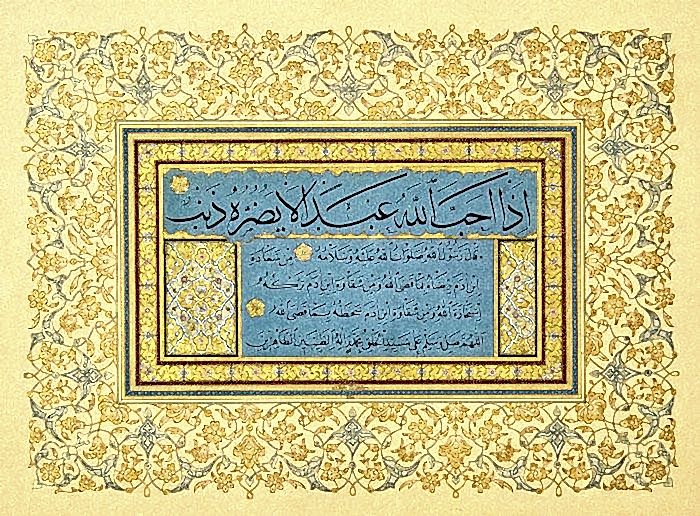 اذا احب الله عبدا لا يضره ذنب
قال رسول الله صلوات الله عليه وسلامه من سعادة
ابن ادم رضاه بما قضى الله ومن شقاوة ابن ادم تركه
استخارة الله ومن شقاوة ابن ادم سخطه بما قضى الله
اللهم صل وسلم على سيدنا محمد واله الطيبين الطاهرين